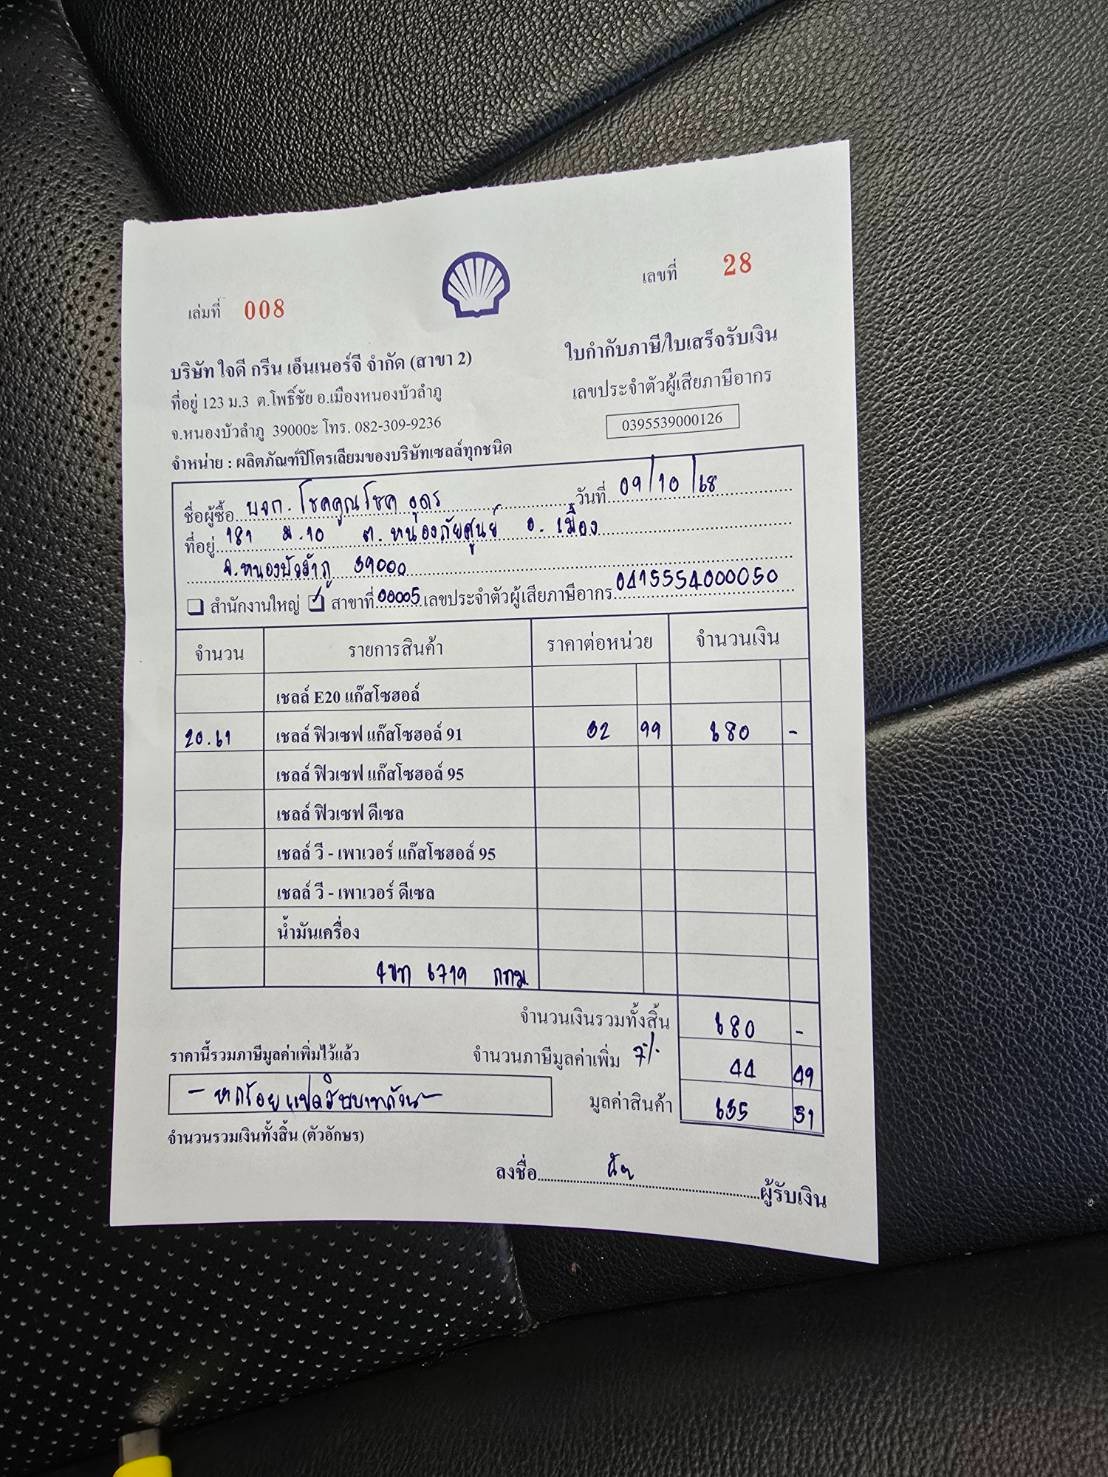 เล่มที่ 008
เลขที่ 28
บริษัท ใจดี กรีน เอ็นเนอร์จี จำกัด (สาขา 2)
ที่อยู่ 123 ม.3 ต.โพธิ์ชัย อ.เมืองหนองบัวลำภู
จ.หนองบัวลำภู 39000ะ โทร. 082-309-9236
จำหน่าย : ผลิตภัณฑ์ปิโตรเลียมของบริษัทเชลล์ทุกชนิด
ใบกำกับภาษี/ใบเสร็จรับเงิน
เลขประจำตัวผู้เสียภาษีอากร
0395539000126
ชื่อผู้ซื้อ หจก. โชคคูณโชค อุดร วันที่ 09/10/68
ที่อยู่ 181 ม.10 ต.หนองภัยศูนย์ อ.เมือง
จ.หนองบัวลำภู 39000
สำนักงานใหญ่ ✓ สาขาที่ 00005 เลขประจำตัวผู้เสียภาษีอากร 0415554000050
จำนวน รายการสินค้า ราคาต่อหน่วย จำนวนเงิน
เชลล์ E20 แก๊สโซฮอล์
20.61 เชลล์ ฟิวเซฟ แก๊สโซฮอล์ 91 32 99 680 -
เชลล์ ฟิวเซฟ แก๊สโซฮอล์ 95
เชลล์ ฟิวเซฟ ดีเซล
เชลล์ วี - เพาเวอร์ แก๊สโซฮอล์ 95
เชลล์ วี - เพาเวอร์ ดีเซล
น้ำมันเครื่อง
6719 กทม.
จำนวนเงินรวมทั้งสิ้น 680 -
ราคานี้รวมภาษีมูลค่าเพิ่มไว้แล้ว จำนวนภาษีมูลค่าเพิ่ม 7% 44 49
- หกร้อยแปดสิบบาทถ้วน - มูลค่าสินค้า 635 51
จำนวนรวมเงินทั้งสิ้น (ตัวอักษร)
ลงชื่อ ผู้รับเงิน